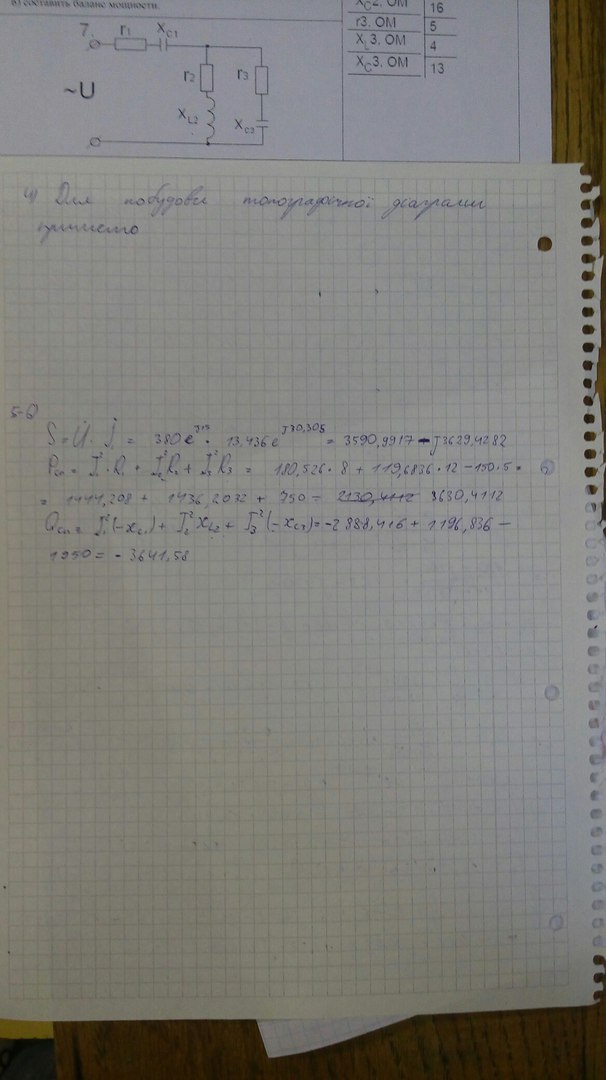 б) составить баланс мощности.
7. r1 XC1
r2 r3
~U
XL2 XC3
XC2. ОМ 16
r3. ОМ 5
XL3. ОМ 4
XC3. ОМ 13
4) Для побудови топографічної діаграми
приймемо
S = U̇ · I = 380 e · 13,436 e^j30,305 = 3590,9917 - j3629,4282
Pсп = I₁² · R₁ + I₂² R₂ + I₃² R₃ = 180,526 · 8 + 119,6836 · 12 - 150 · 5 =
= 1444,208 + 1436,2032 + 750 = 3630,4112
Qсп = I₁² (-xc₁) + I₂² XL2 + I₃² (-Xc3) = -2888,416 + 1196,836 -
1950 = - 3641,58